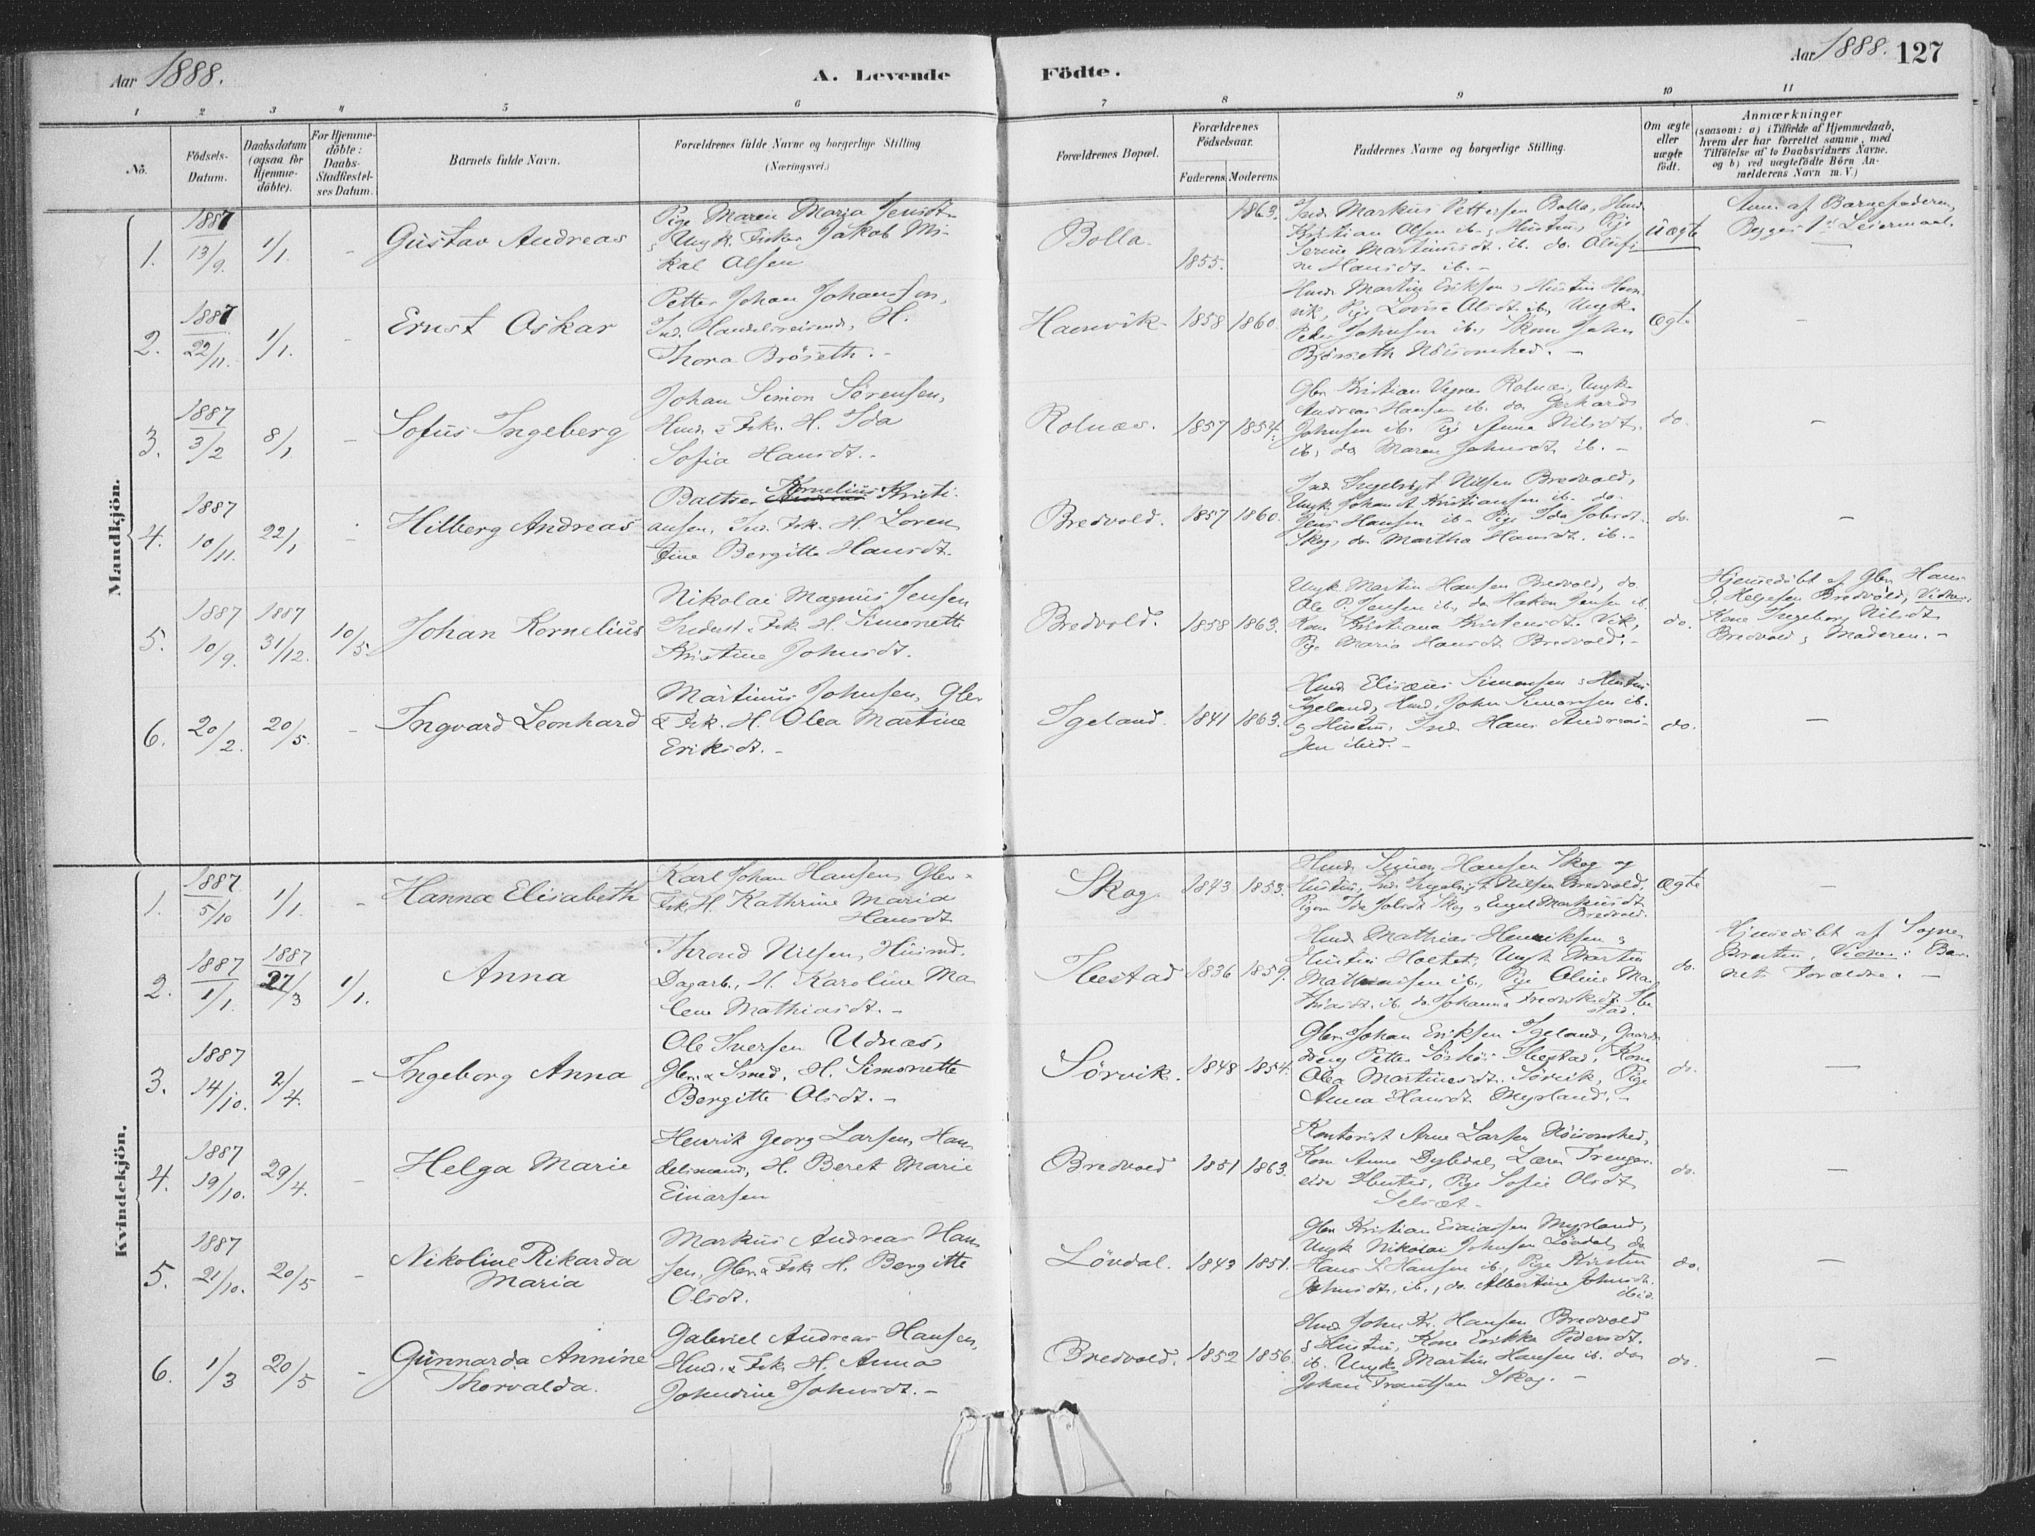 Aar 1888.
A. Levende
Födte.
Aar 1888. 127
1 2 3 4 5 6 7 8 9 10 11
No.
Födsels-
Datum.
Daabsdatum
(ogsaa for
Hjemme-
döbte).
For Hjemme-
döbte:
Daabs-
Stadfæstel-
ses Datum.
Barnets fulde Navn.
Forældrenes fulde Navne og borgerlige Stilling
(Næringsvei.)
Forældrenes Bopæl.
Forældrenes
Födselsaar.
Faderens. Moderens.
Faddernes Navne og borgerlige Stilling.
Om ægte
eller
uægte
födt.
Anmærkninger
(saasom: a) i Tilfælde af Hjemmedaab,
hvem der har forrettet samme, med
Tilföielse af to Daabsvidners Navne.
og b) ved uægtefödte Börn An-
melderens Navn m. V.)
Mandkjön.
1.
1887
13/9.
1/1.
-
Gustav Andreas
Pige Maren Maria Jensdt.
Ungk. Fisker Jakob Mi-
kal Olsen
Bolla.
1855.
1863.
Ind. Markus Pettersen Bolla, Husm.
Kristian Olsen ib. & Hustru, Pige
Serine Martinusdt. ib. do. Olufi-
ne Hansdt. ib. -
Uægte
Anm. af Barnefaderen,
Begges 1ste Leiermaal.
2.
1887
22/11.
1/1.
-
Ernst Oskar
Petter Johan Johansen,
Ind. Handelsreisende, H.
Thora Bröseth. -
Hamvik
1858
1860.
Husm. Martin Eriksen & Hustru Ham-
vik, Pige Lovise Olsdt. ib., Ungk.
Peder Johnsen ib., Skom. John
Ægte
-
3.
1887
3/2
8/1
-
Sofus Ingeberg
Johan Simon Sörensen,
Husm. & Fisk. H. Ida
Sofia Hansdt. -
Rolnæs.
1857
1854.
Gbr. Kristian Rolnæs, Ungk.
Andreas Hansen ib. do. Gerhard
Johnsen ib. Pige Anna Nilsdt.
ib., do. Maren Johnsdt. ib. -
do.
-
4.
1887
10/11.
22/1
-
Hilberg Andreas
Baltser Kornelius Kristi-
ansen, Ind. Fisk. H. Loren
tine Bergitte Hansdt.
Bredvold.
1857
1860.
Ind. Ingebrigt Nilsen Bredvold,
Ungk. Johan A. Kristiansen ib. do.
Jens Hansen ib. Pige Ida Jakobsdt.
Skog, do. Martha Hansdt. ib. -
do.
-
5.
1887
10/9.
1887
31/12.
10/5.
Johan Kornelius
Nikolai Magnus Jensen
Inderst & Fisk. H. Simonette
Kristine Johnsdt.
Bredvold.
1858
1863.
Ungk. Martin Hansen Bredvold, do.
Ole P. Jensen ib., do. Hakon Jensen ib.
Kone Kristiana Kristensdt. Vik,
Pige Maria Hansdt Bredvold. -
do.
Hjemedöbt af Gbr. Hans
J. Helgesen Bredvold, Vidner:
Kone Ingeborg Nilsdt.
Bredvold & Moderen. -
6.
20/2.
20/5.
-
Ingvard Leonhard
Martinus Johnsen, Gbr.
& Fisk. H. Olea Martine
Eriksdt. -
Igeland.
1841
1863.
Husm. Elisæus Simonsen & Hustru
Igeland, Husm. John Simonsen ib.
& Hustru, Ind. Hans Andreas-
sen ibid. -
do.
-
Kvindekjön.
1.
1887
5/10
1/1.
-
Hanna Elisabeth
Karl Johan Hansen, Gbr. &
Fisk. H. Kathrine Maria
Hansdt
Skog
1843
1853.
Husm. Hansen Skog og
Hustru, Ind. Ingebrigt Nilsen Bredvold.
Pigerne Ida Jakobsdt Skog & Engel Markusdt
Bredvold.
Ægte
-
2.
1887
1/1.
1887
27/3
1/1.
Anna
Thrond Nilsen, Husmd.
Dagarb., H. Karoline Ma
lene Mathiasdt. -
Ibestad
1836
1859.
Husm. Mathias Henriksen &
Hustru Holtet, Ungk Martin
Mathiassen ib., Pige Oline Ma-
thiasdt. ib. do. Johanna Fredriksdt. Ibe
stad.
do.
Hjemedöbt af Sogne-
Presten, Vidner: Bar-
nets Forældre. -
3.
1887
14/10.
2/4.
-
Ingeborg Anna
Ole Iversen Udnæs,
Gbr. & Smed, H. Simonette
Bergitte Olsdt. -
Sörvik.
1848
1854.
Gbr. Johan Eriksen Igeland, Gaard
dreng Petter Ibestad, Kone
Olea Martinesdt. Sörvik, Pige
Anna Hansdt Myrland. -
do.
-
4.
1887
19/10.
29/4.
-
Helga Marie
Henrik Georg Larsen, Han
delsmand, H. Beret Marie
Einarsen
Bredvold
1851
1863.
Kontorist Arne Larsen
Kone Anne Dybdal, Lærer Trenger-
eide Ibestad, Pige Sofie Olsdt
Selsæt -
do.
-
5.
1887
21/10.
20/5
-
Nikoline Rikarda
Maria
Markus Andreas Han
sen, Gbr. & Fisk H. Bergitte
Olsdt.
Lövdal.
1843
1851.
Gbr. Kristian Esaiassen Myrland,
Ungk Nikolai Johnsen Lövdal, do.
Hans S. Hansen ib., Pige Kirsten
Johnsdt. ib., do. Albertine Johnsdt.
ibid.
do.
-
6.
1/3
20/5
-
Gunnarda Annine
Thorvalda.
Gabriel Andreas Hansen,
Husm. & Fisk H. Anna
Johndine Johnsdt. -
Bredvold.
1852
1856.
Husm. John Kr. Hansen Bredvold
& Hustru, Kone Erikka Pedersdt.
ib. Ungk Martin Hansen ib. do.
Johan Frantsen Skog. -
do.
-